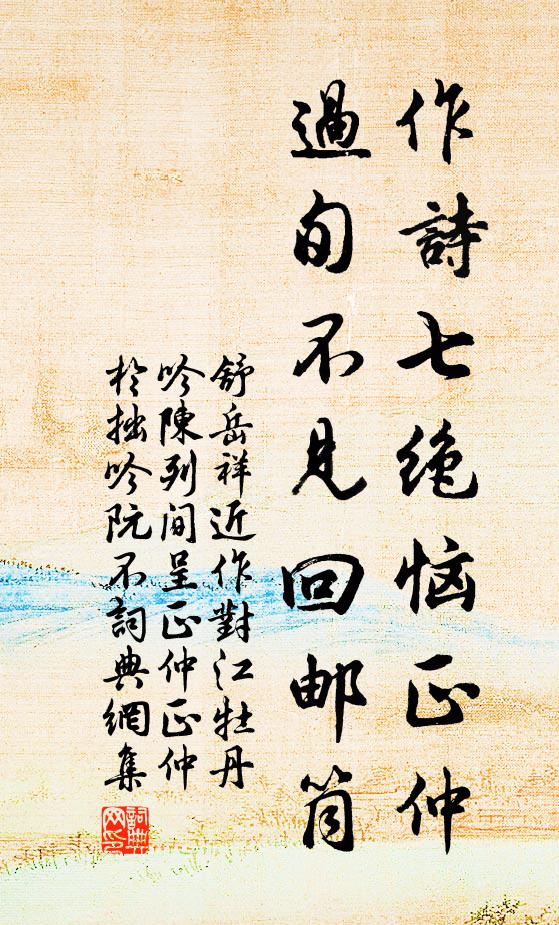 作詩七絶恼正仲
過旬不見回邮筒
舒岳祥近作對江牡丹
吟陳列间呈正仲正仲
於拙吟阮不詞典網集
詞典网印